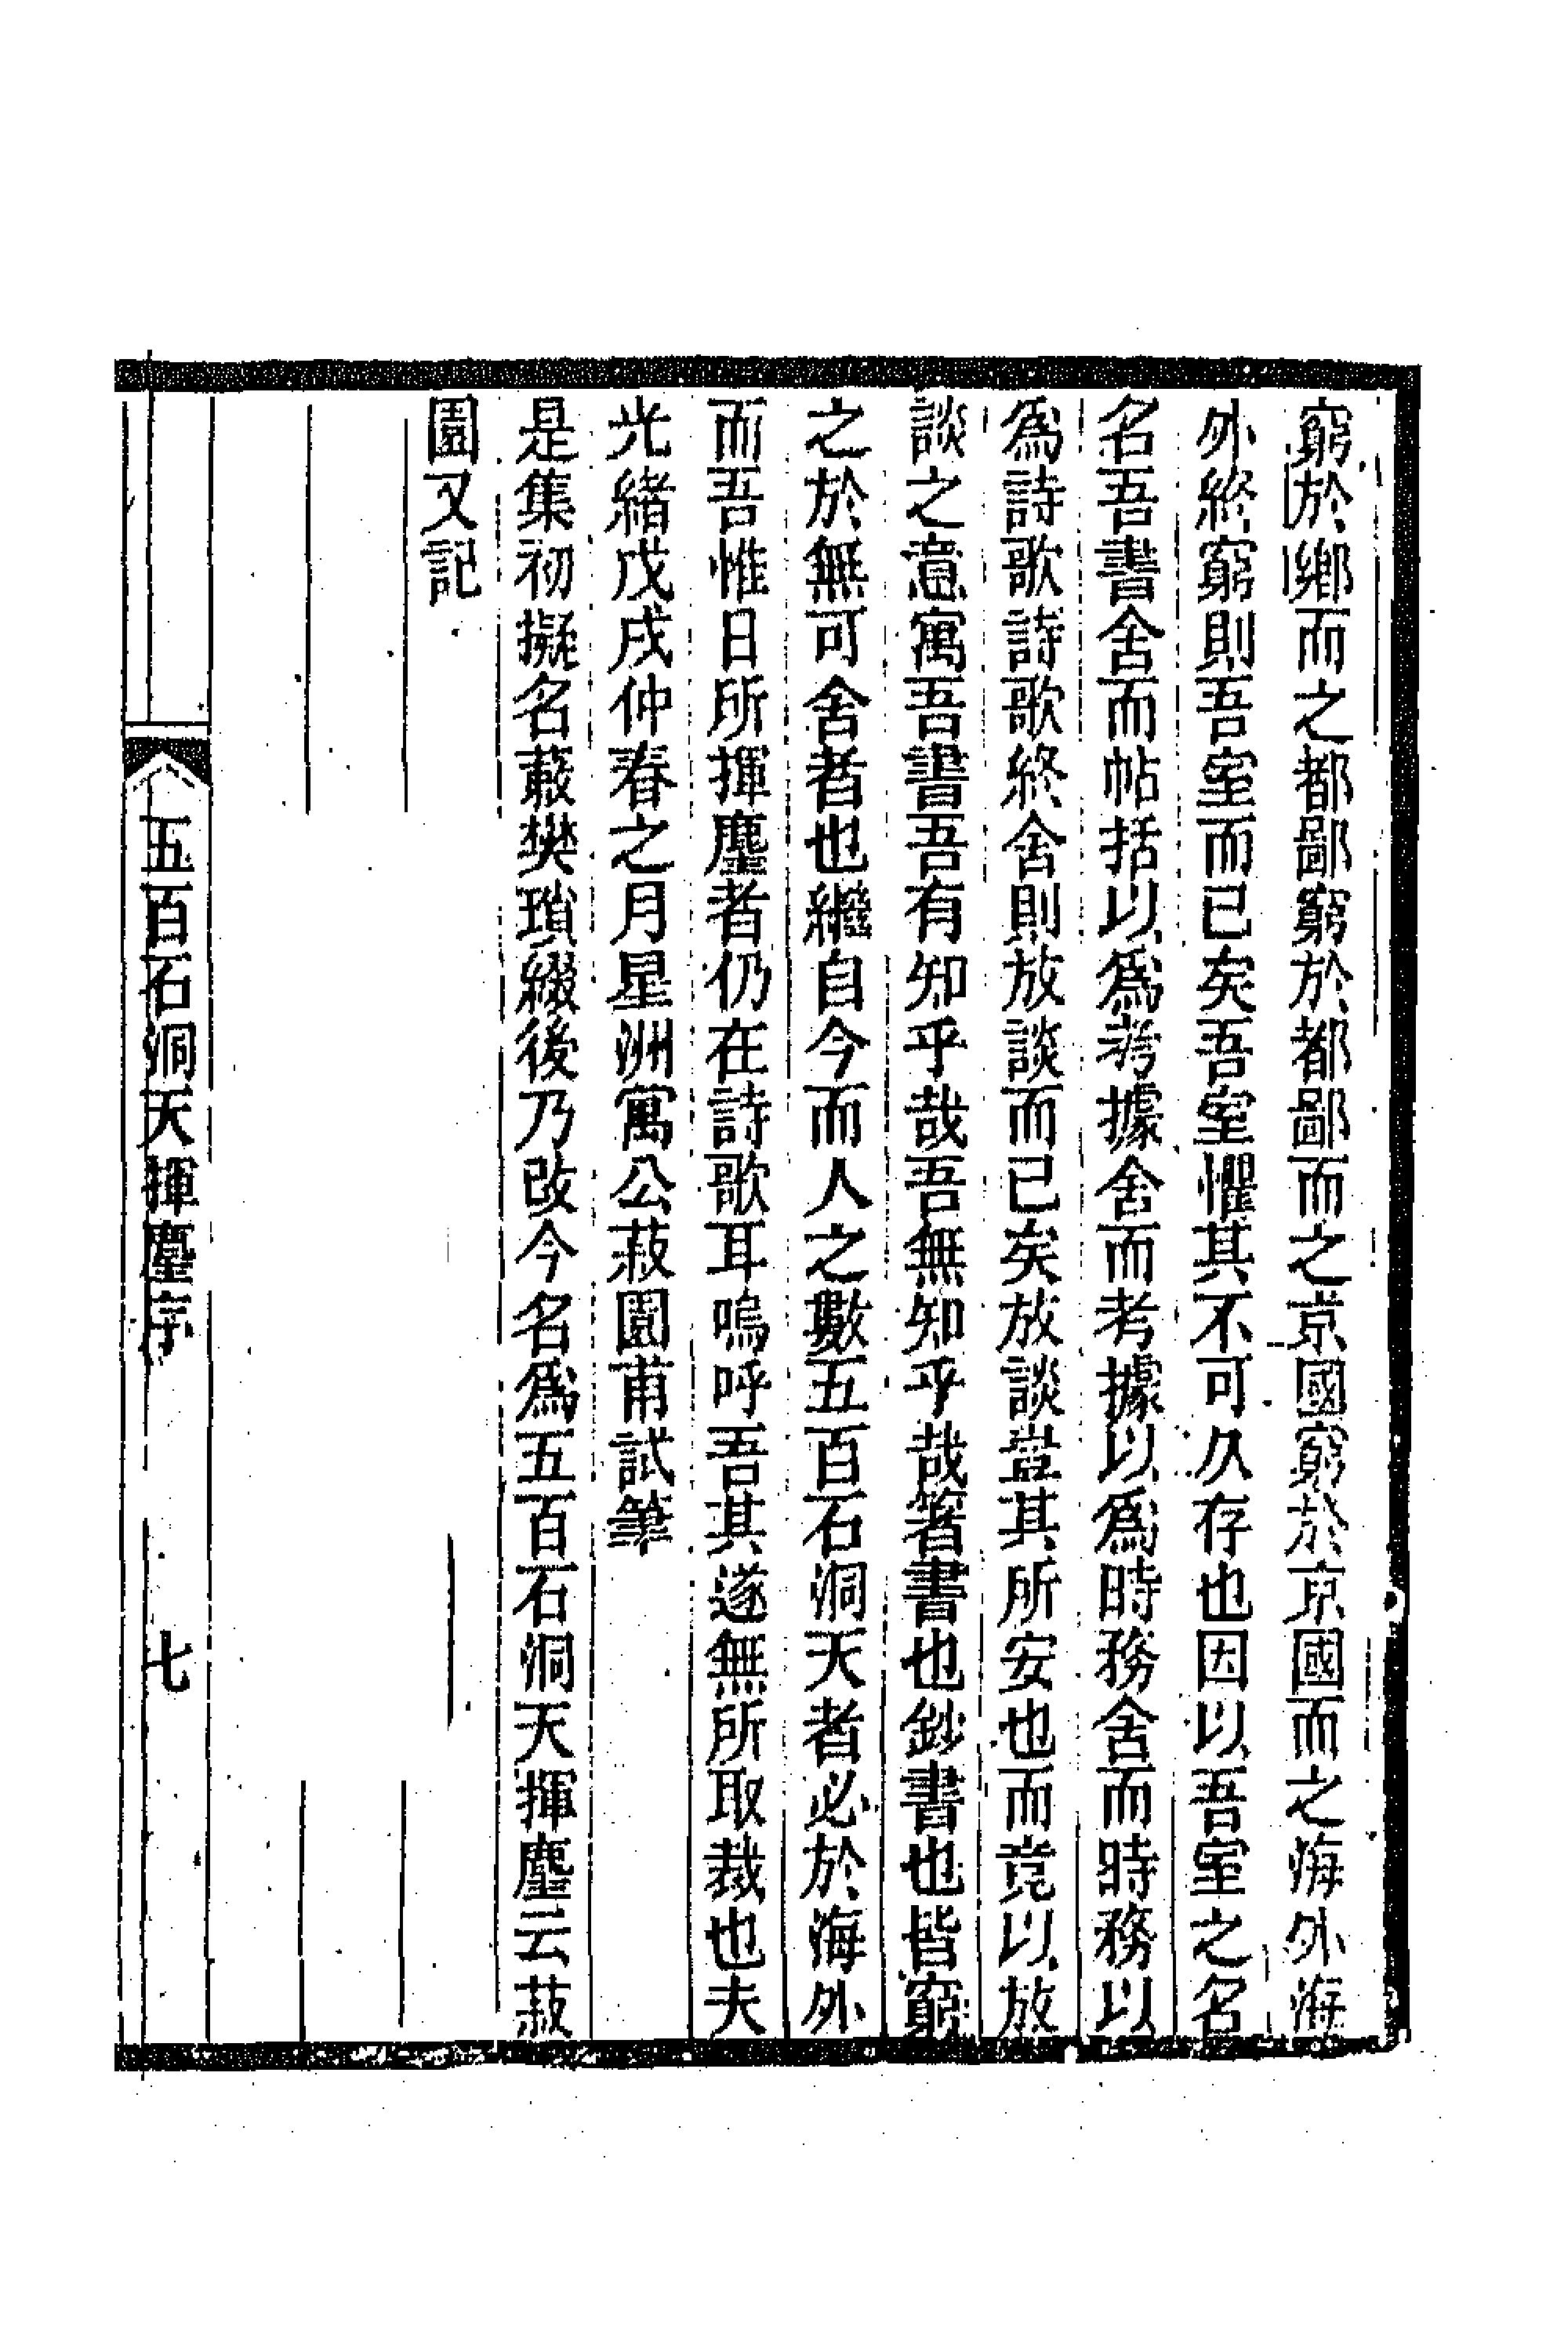 窮於鄉而之都鄙窮於都鄙而之京國窮於京國而之海外海
外終窮則吾室而已矣吾室懼其不可久存也因以吾室之名
名吾書舍而帖括以爲考據舍而考據以爲時務舍而時務以
爲詩歌詩歌終舍則放談而已矣放談豈其所安也而竟以放
談之意寓吾書吾有知乎哉吾無知乎哉箸書也鈔書也皆窮
之於無可舍者也繼自今而人之數五百石洞天者必於海外
而吾惟日所揮麈者仍在詩歌耳嗚呼吾其遂無所取裁也夫
光緒戊戌仲春之月星洲寓公菽園甫試筆
是集初擬名菽樊瑣綴後乃改今名爲五百石洞天揮麈云菽
園又記
五百石洞天揮麈序
七